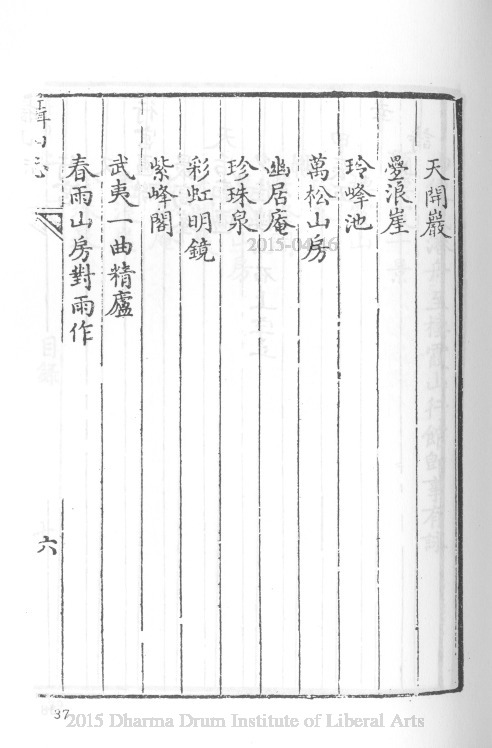 天開巖
疊浪崖
玲峰池
萬松山房
幽居庵
珍珠泉
彩虹明鏡
紫峰閣
武夷一曲精廬
春雨山房對雨作
六
37
2015-04-16
2015 Dharma Drum Institute of Liberal Arts